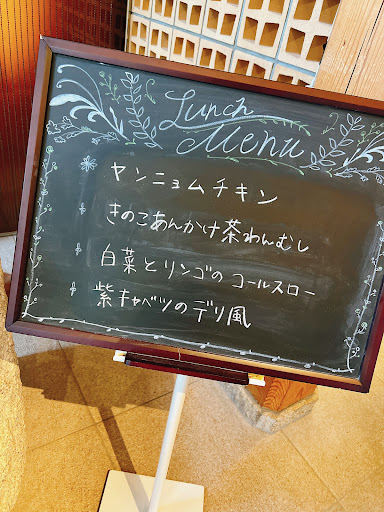 Lunch
Menu
ヤンニョムチキン
きのこあんかけ茶わんむし
白菜とリンゴのコールスロー
紫キャベツのデリ風